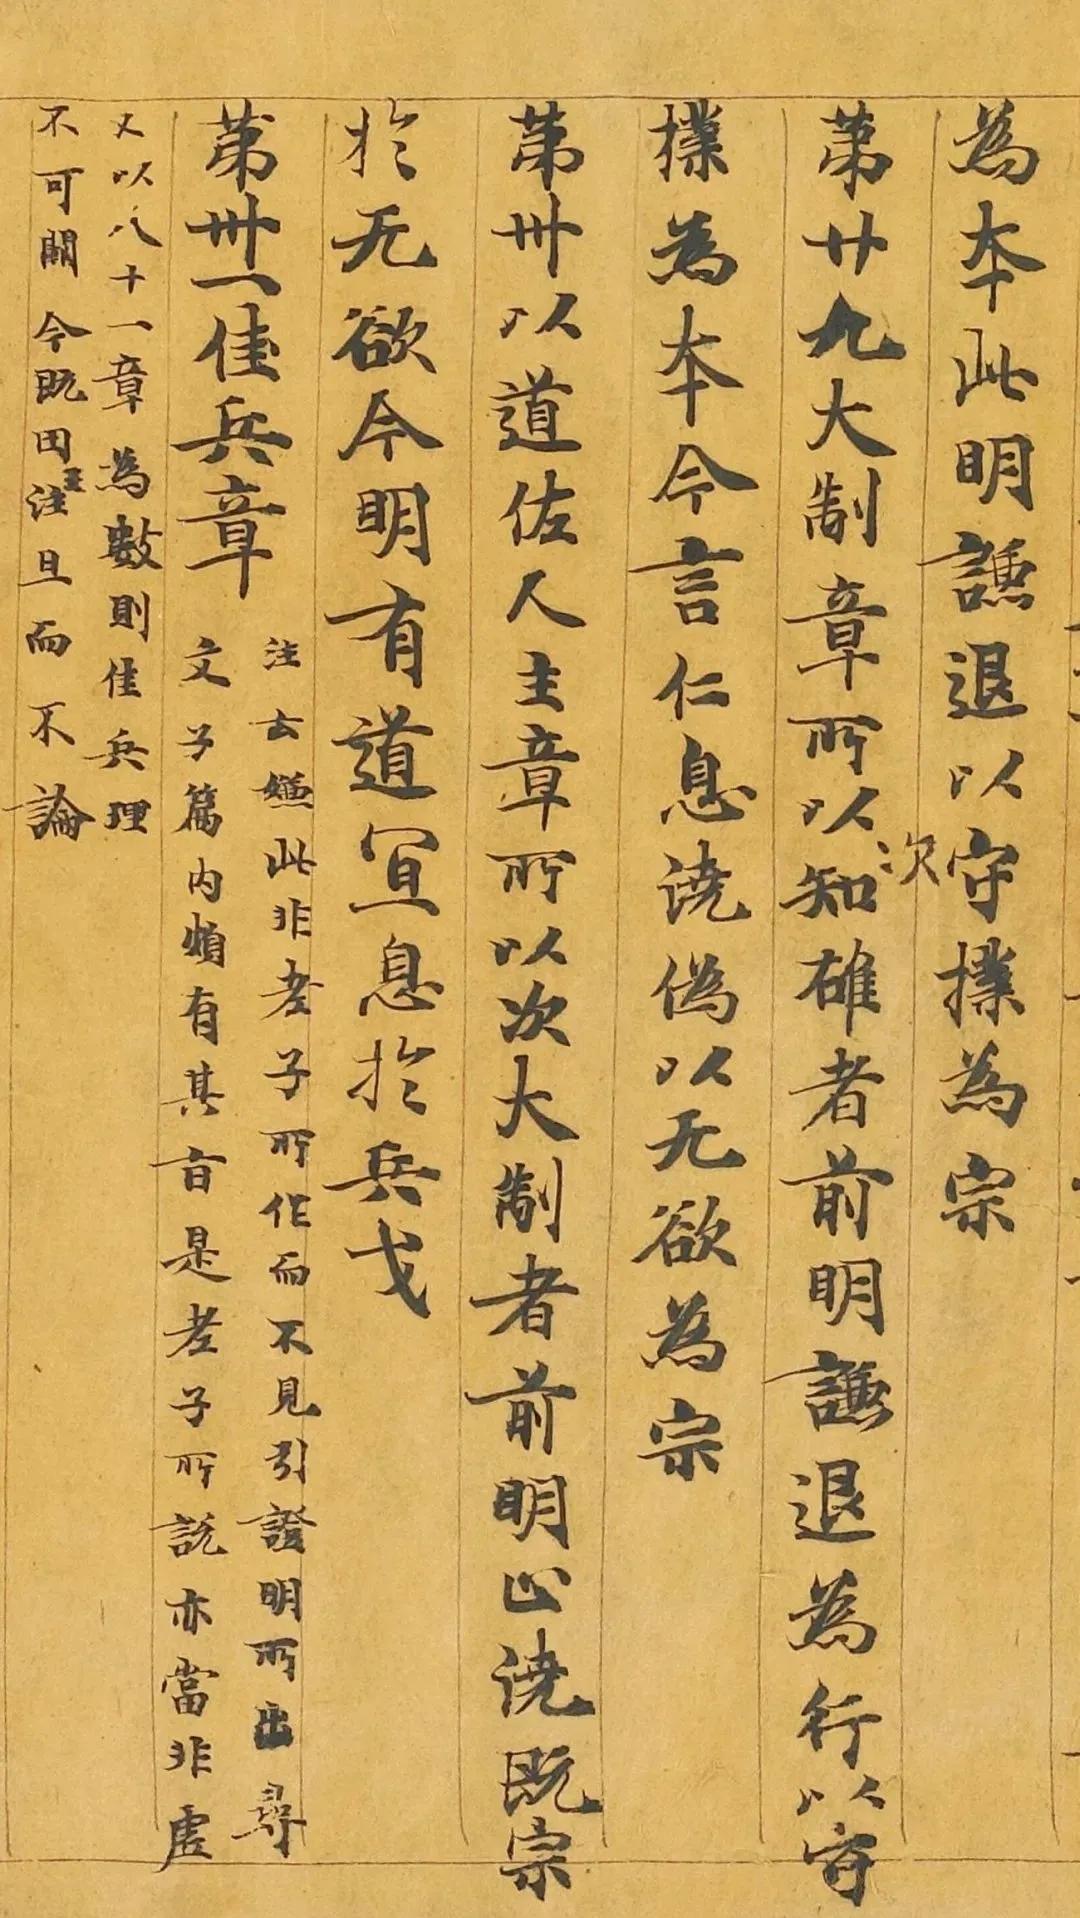 為本此明謙退以守撲為宗
第廿九大制章所以次知雄者前明謙退為行以守
撲為本今言仁息澆偽以无欲為宗
第卅以道佐人主章所以次大制者前明止澆既宗
於无欲今明有道宜息於兵戈
第卅一佳兵章
注云嫌此非老子所作而不見引證明所出尋
文子篇内頻有其旨是老子所説亦當非虚
又以八十一章為數則佳兵理
不可闕今既因王注且而不論